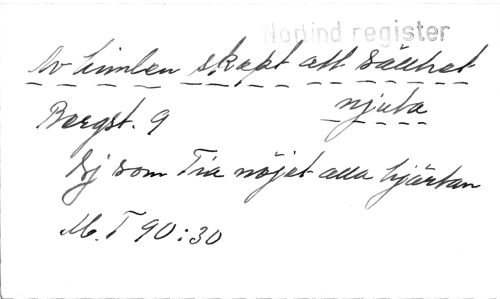 Norlind register
Av himlen skapt att sällhet
njuta
Bergst. 9
Ej som Tia nöjet alla hjärtan
M. T 90:30